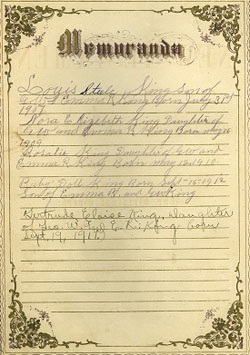 Memoranda
Louis Steele King son of
G.W. Emma R King Born July 31
1907
Nora Elizabeth King Daughter of
G W and Emma R King Born May
1909
Rosalie King Daughter G W and
Emma R King Born May 12 1910
Baby Doll King Born Sept-15-1912
Son of Emma R. and G W King
Gertrude Eloise King, daughter
of Geo. W. and E. R. King born
Sept. 19, 1917